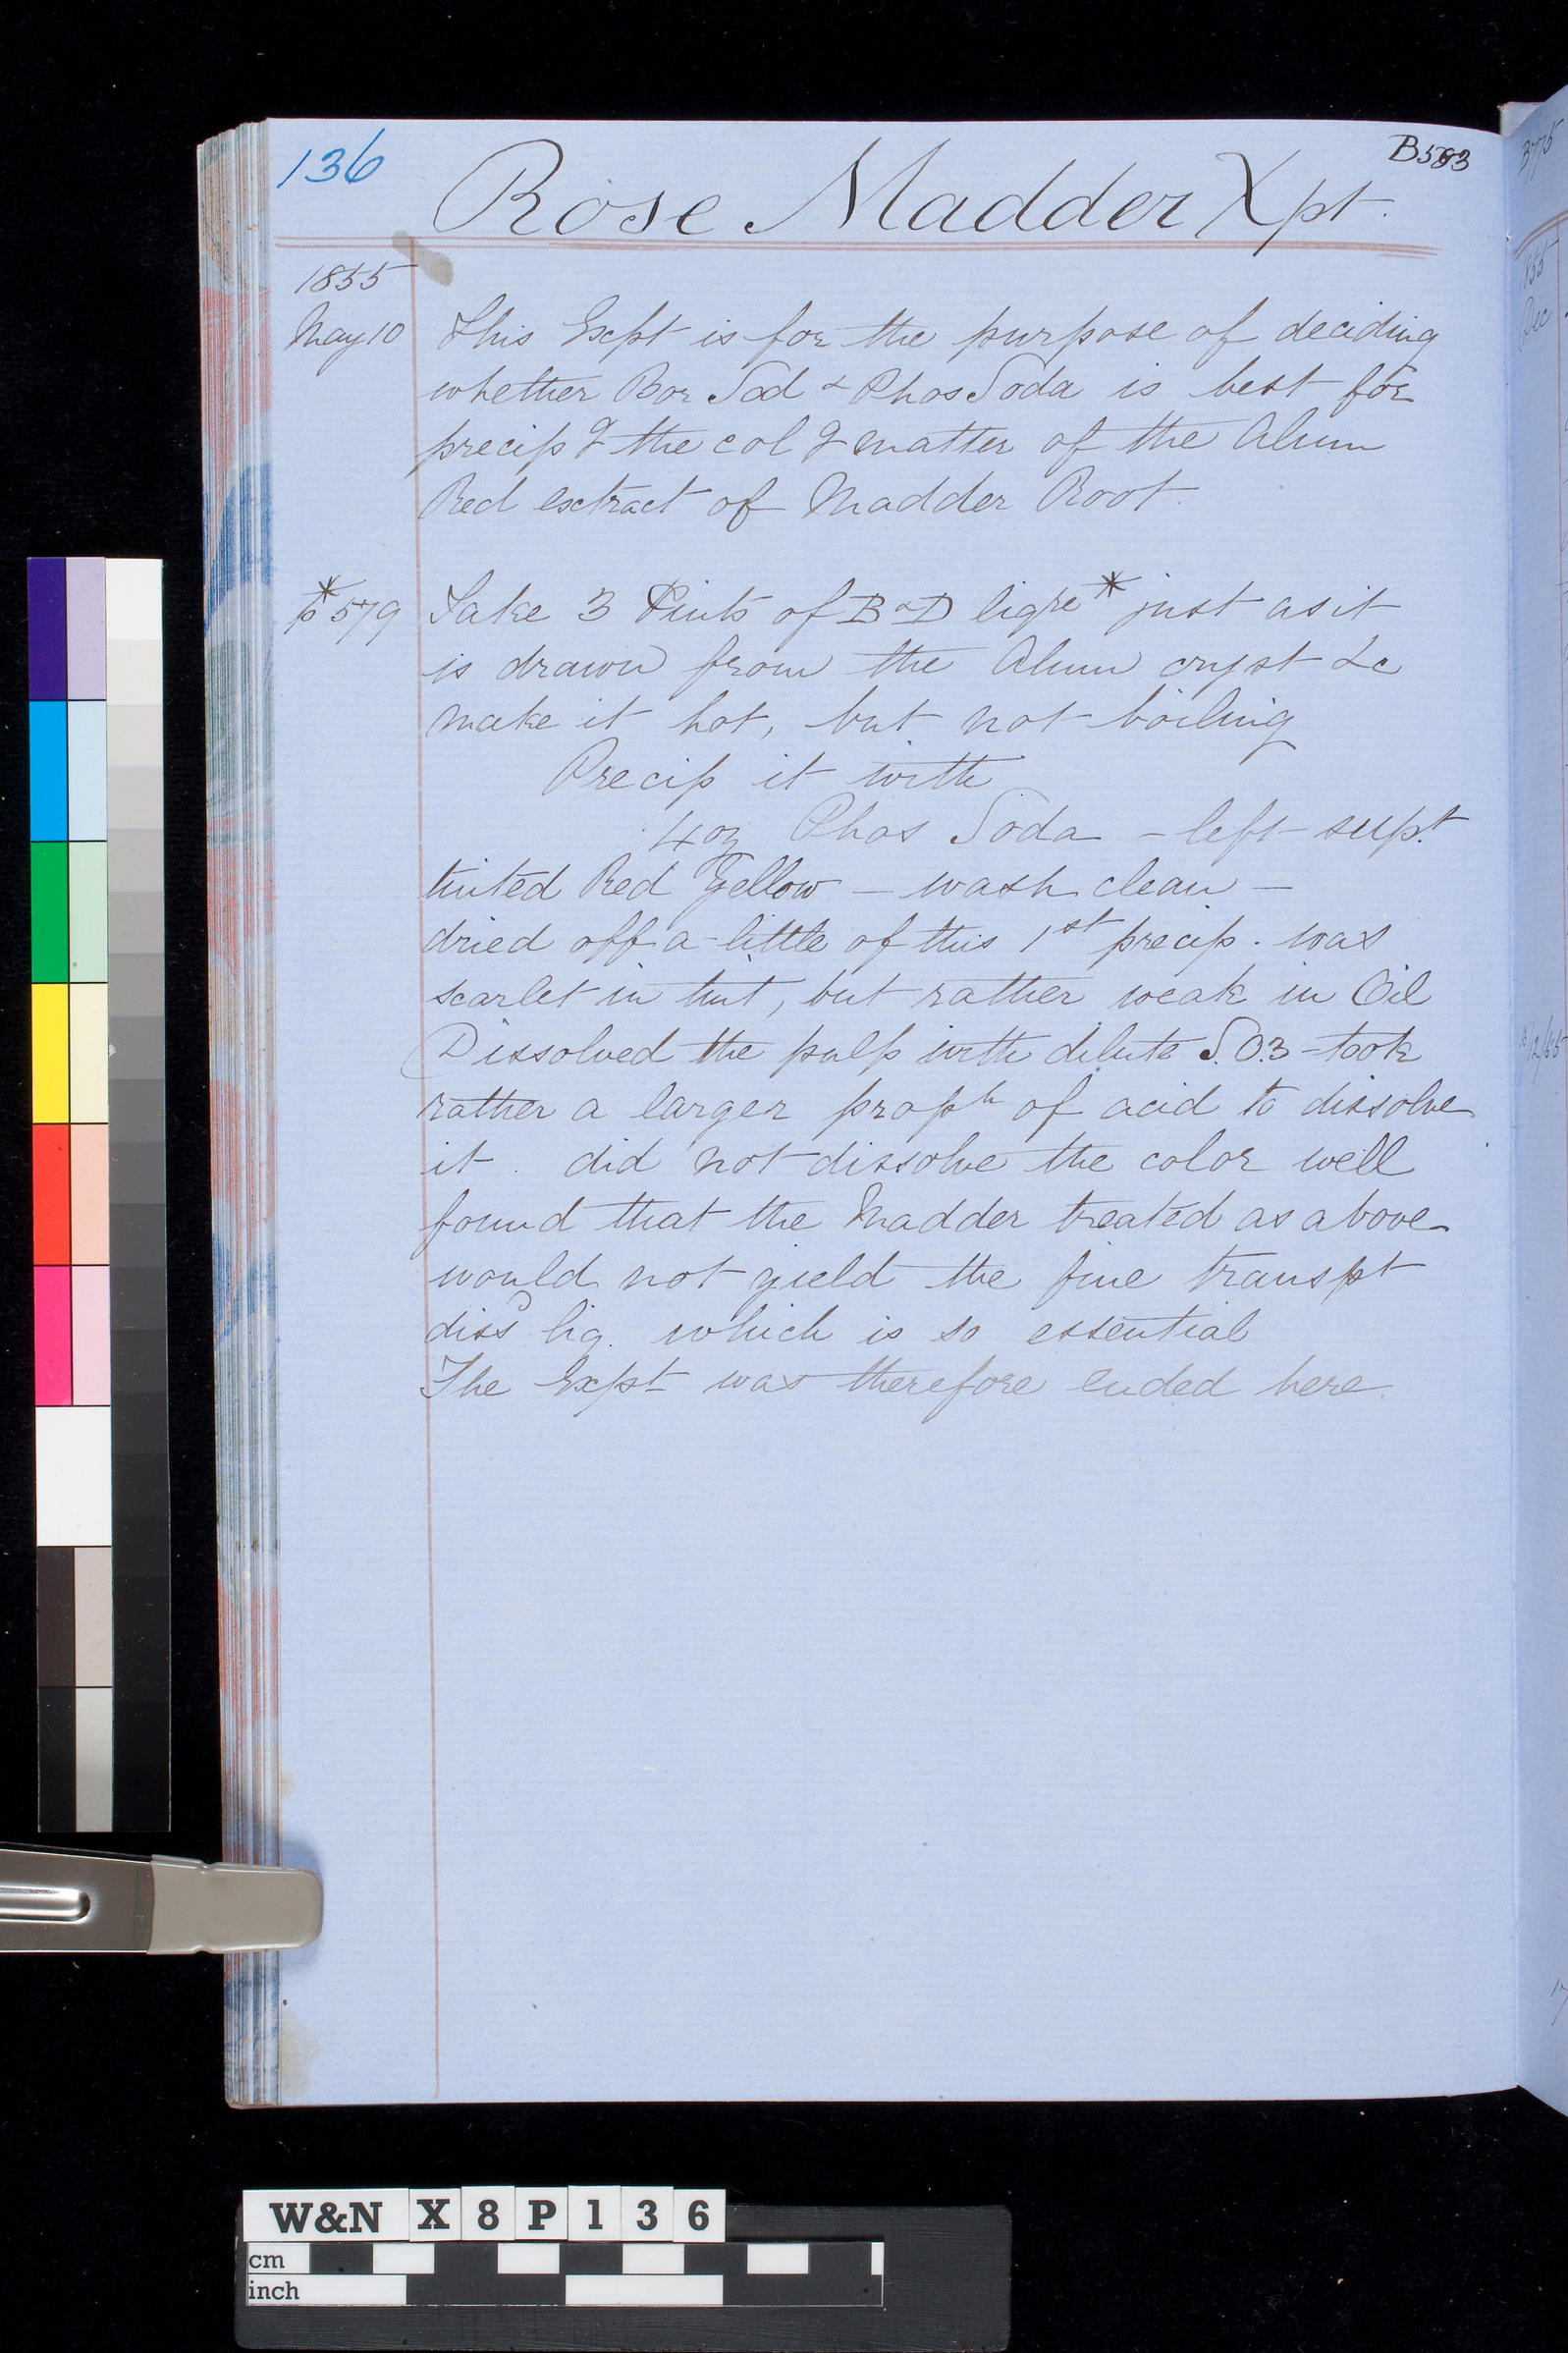 136
B583
Rose Madder Xpt.
1855
May 10 This Expt is for the purpose of deciding
whether Bor Sod & Phos Soda is best for
precip g the col g matter of the Alum
Red extract of Madder Root.
* p 579 Take 3 Pints of B & D liqre * just as it
is drawn from the Alum cryst &c
make it hot, but not boiling
Precip it with
4oz Phos Soda - left supt
tinted Red Yellow - wash clean -
dried off a little of this 1st precip. was
scarlet in tint, but rather weak in Oil
Dissolved the pulp with dilute S.O.3 - took
rather a larger propn of acid to dissolve
it. did not dissolve the color well
found that the Madder treated as above
would not yield the fine transpt
dissd liq. which is so essential
The Expt was therefore ended here.
B775
1855
Dec
W&N X 8 P 1 3 6
cm
inch